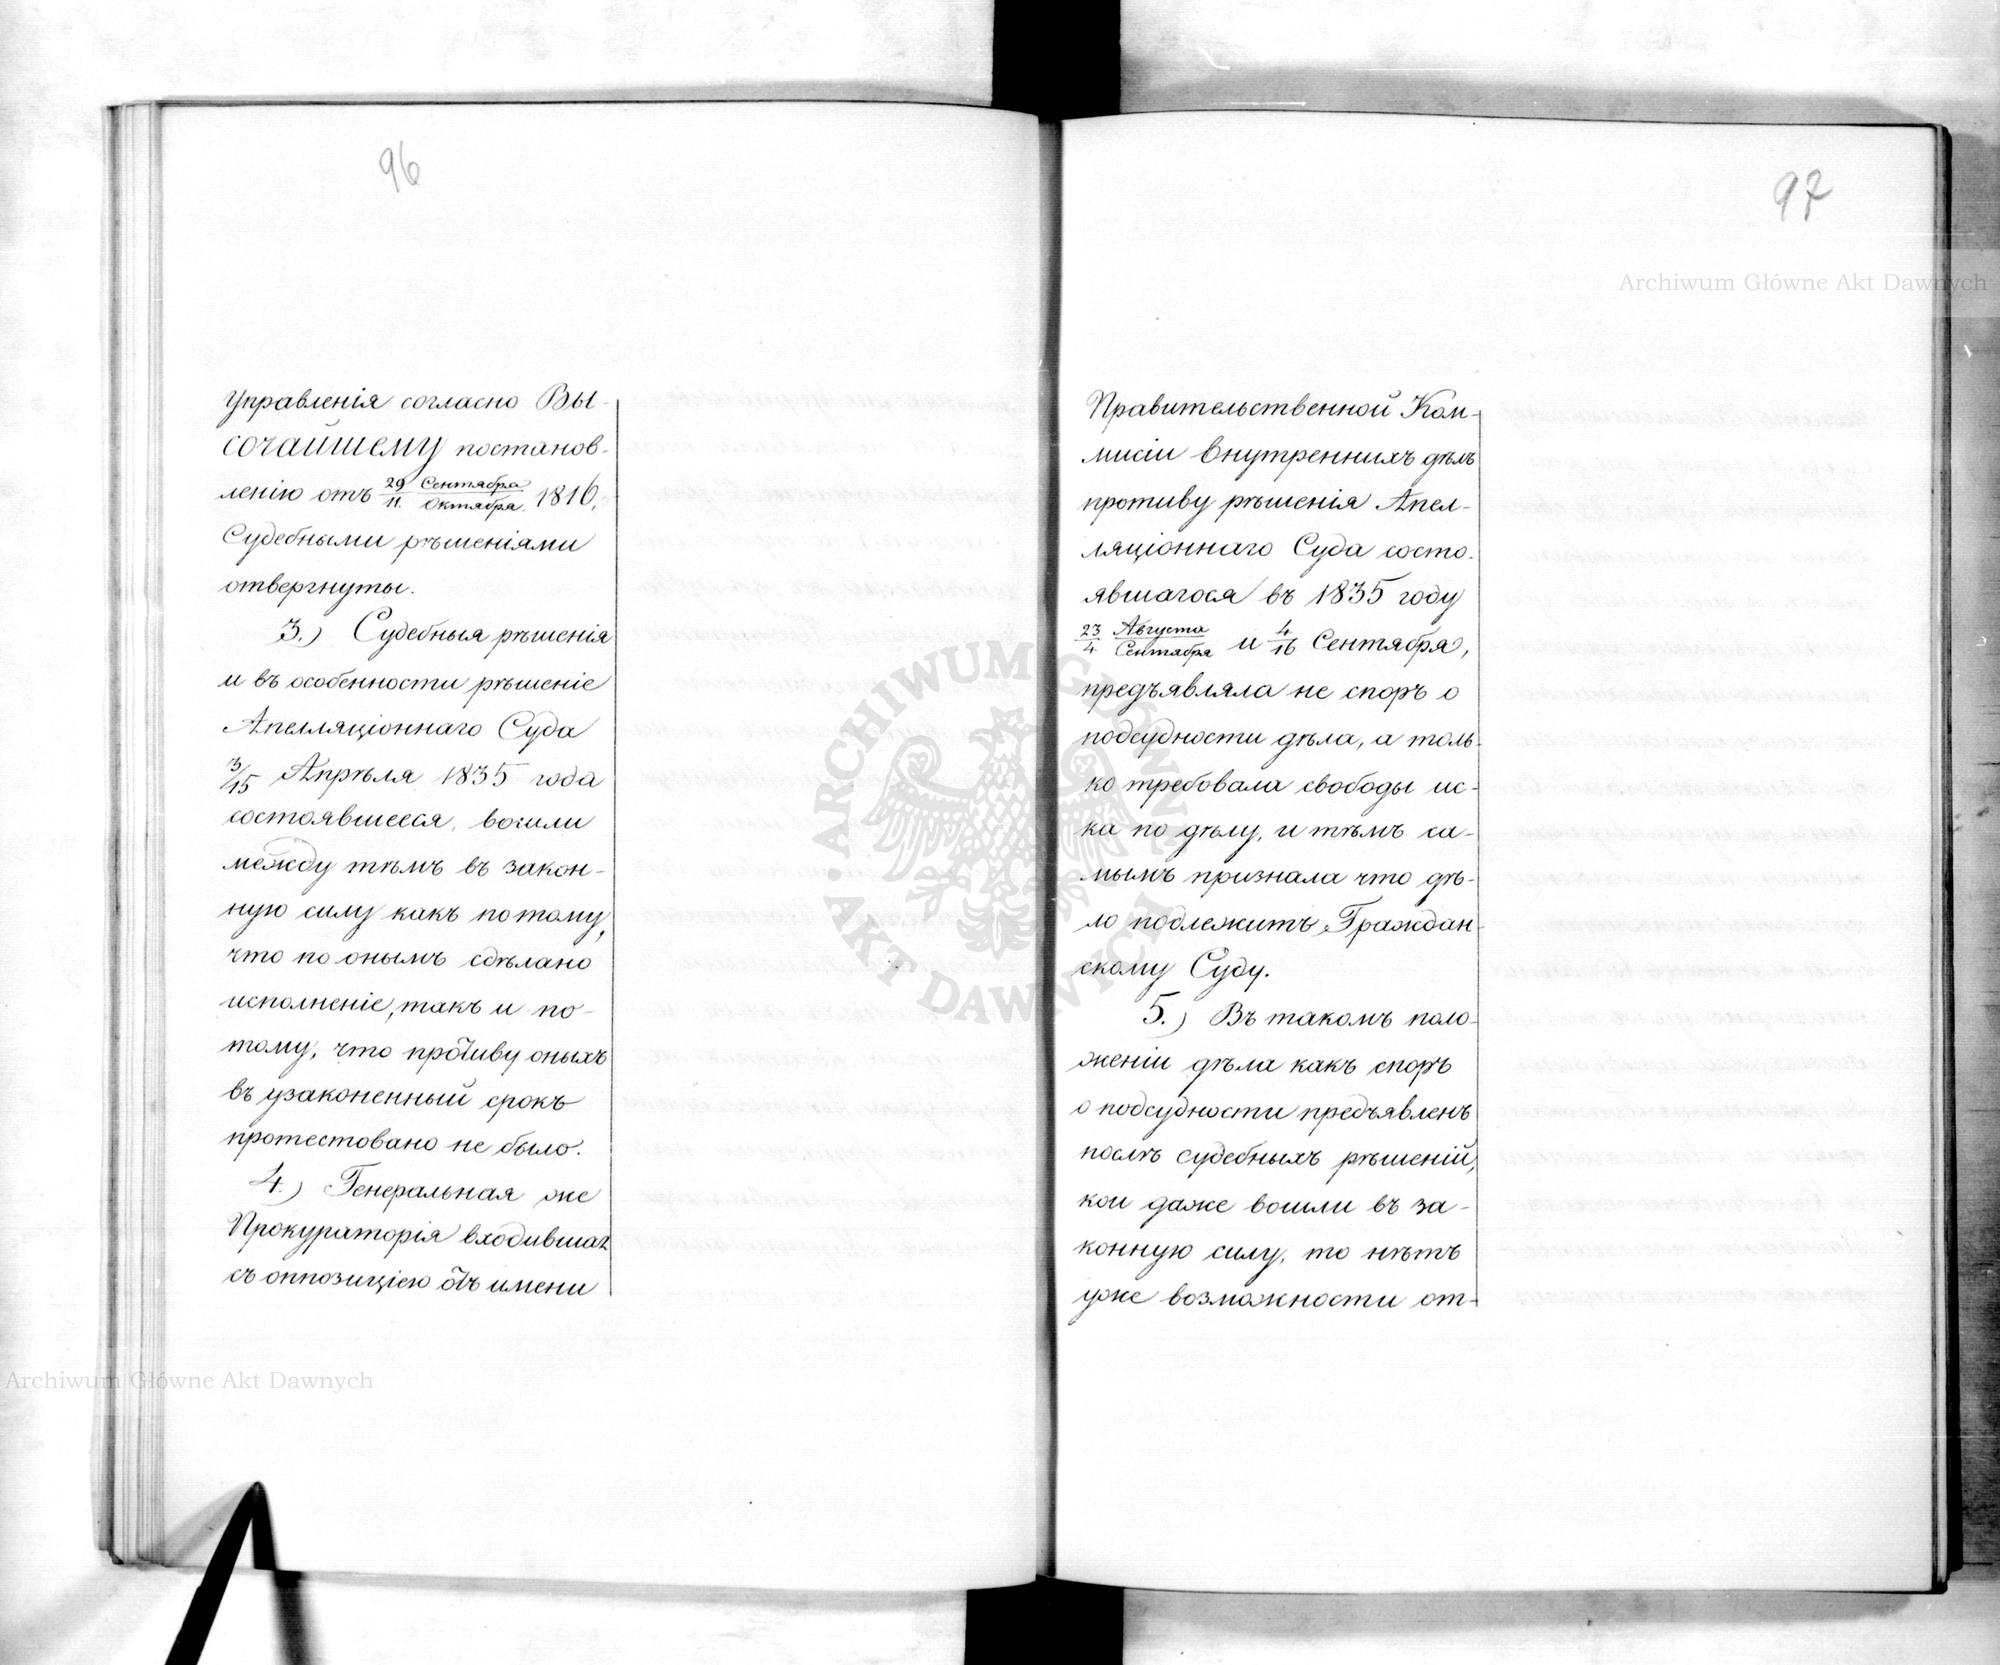 96
Управленія согласно Вы-
сочайшему постанов-
ленію отъ 29/11. Сентября/Октября. 1816,
Судебными рѣшеніями
отвергнуты.
3.) Судебныя рѣшенія
и въ особенности рѣшеніе
Апелляціоннаго Суда
3/15 Апрѣля 1835 года
состоявшееся, вошли
между тѣмъ въ закон-
ную силу какъ потому,
что по онымъ сдѣлано
исполненіе, такъ и по-
тому, что противу оныхъ
въ узаконенный срокъ
протестовано не было.
4.) Генеральная же
Прокураторія входившая
съ оппозиціею отъ имени
97
Правительственной Ком-
мисіи Внутреннихъ дѣлъ
противу рѣшенія Апел-
ляціоннаго Суда состо-
явшагося въ 1835 году
23/4 Августа/Сентября и 4/16 Сентября,
предъявляла не споръ о
подсудности дѣла, а толь-
ко требовала свободы ис-
ка по дѣлу, и тѣмъ са-
мымъ признала что дѣ-
ло подлежитъ Граждан-
скому Суду.
5.) Въ такомъ поло-
женіи дѣла какъ споръ
о подсудности предъявленъ
послѣ судебныхъ рѣшеній,
кои даже вошли въ за-
конную силу, то нѣтъ
уже возможности от-
Archiwum Główne Akt Dawnych
Archiwum Główne Akt Dawnych
ARCHIWUM GŁÓWNE AKT DAWNYCH